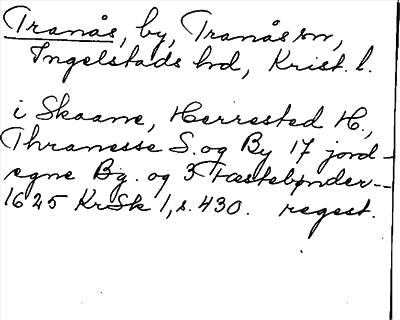 Tranås, by, Tranås sn,
Ingelstads hd, Krist. l.
i Skaane, Herrested H.,
Thranesse S. og By 17 jord-
egne Bg. og 3 Fæstebønder--
1625 KrSk 1, s. 430. regest.